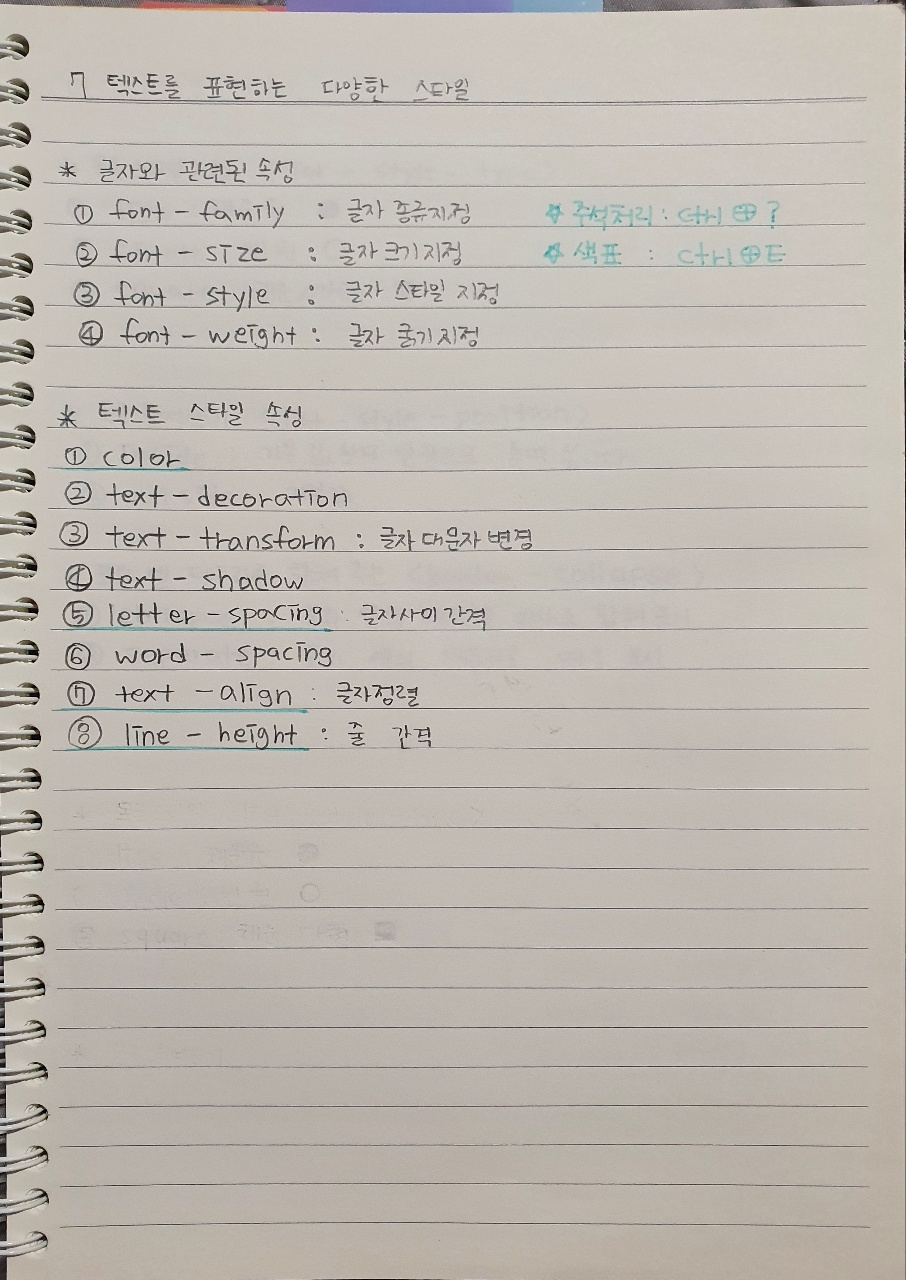 7 텍스트를 표현하는 다양한 스타일
* 글자와 관련된 속성
① font - family : 글자 종류지정 ☆ 주석처리 : ctrl ⊕ ?
② font - size : 글자 크기 지정 ☆ 색표 : ctrl ⊕ E
③ font - style : 글자 스타일 지정
④ font - weight : 글자 굵기 지정
* 텍스트 스타일 속성
① color
② text - decoration
③ text - transform : 글자 대문자 변경
④ text - shadow
⑤ letter - spacing : 글자사이 간격
⑥ word - spacing
⑦ text - align : 글자정렬
⑧ line - height : 줄 간격